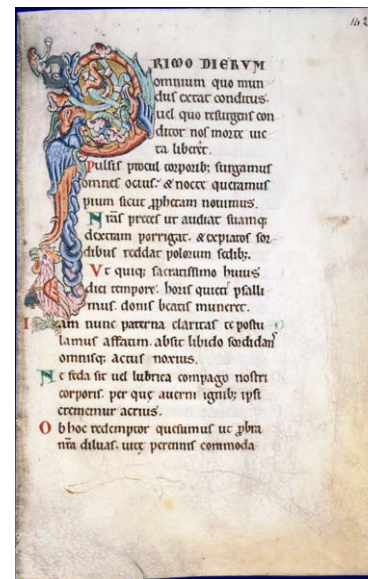 142
PRIMO DIERVM
omnium quo mun
dus extat conditus.
uel quo resurgens con
ditor nos morte uic
ta liberet.
Pulsis procul corporib; surgamus
omnes ocius. & nocte queramus
pium sicut ꝓphetam nouimus.
Nr̄as preces ut audiat suamq;
dextram porrigat. & expiatos sor
dibus reddat polorum sedib;.
Vt quiq; sacratissimo huius
diei tempore. horis quieti psalli
mus. donis beatis muneret.
Iam nunc paterna claritas te postu
lamus affatim. absit libido sordidans
omnisq; actus noxius.
Ne feda sit uel lubrica compago nostri
corporis. per quę auerni ignib; ipsi
crememur acrius.
Ob hoc redemptor quesumus ut ꝓbra
nr̄a diluas. uitę perennis commoda